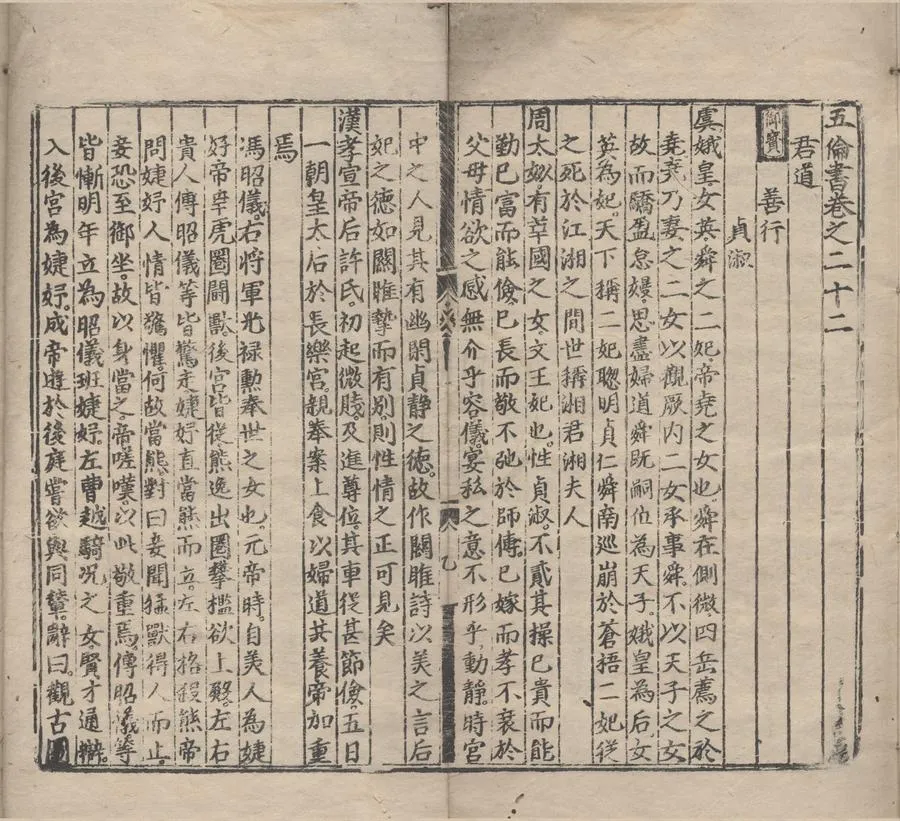 五倫書卷之二十二
君道
御寳
善行
貞淑
虞娥皇女英舜之二妃帝堯之女也舜在側微四岳薦之於
堯堯乃妻之二女以觀厥内二女承事舜不以天子之女
故而驕盈怠嫚思盡婦道舜既嗣位為天子娥皇為后女
英為妃天下稱二妃聰明貞仁舜南巡崩於蒼梧二妃從
之死於江湘之間世稱湘君湘夫人
周太姒有莘國之女文王妃也性貞淑不貳其操已貴而能
勤已富而能儉已長而敬不弛於師傳已嫁而孝不衰於
父母情欲之感無介乎容儀宴私之意不形乎動靜時宮
中之人見其有幽閑貞靜之德故作關雎詩以美之言后
妃之德如關雎摯而有别則性情之正可見矣
漢孝宣帝后許氏初起微賤及進尊位其車從甚節儉五日
一朝皇太后於長樂宮親奉案上食以婦道共養帝加重
焉
馮昭儀右將軍光禄勲奉世之女也元帝時自美人為婕
妤帝幸虎圈鬪獸後宮皆從熊逸出圈攀檻欲上殿左右
貴人傳昭儀等皆驚走婕妤直當熊而立左右格殺熊帝
問婕妤人情皆驚懼何故當熊對曰妾聞猛獸得人而止
妾恐至御坐故以身當之帝嗟嘆以此敬重焉傳昭儀等
皆慚明年立為昭儀班婕妤左曹越騎况之女賢才通辯
入後宮為婕妤成帝遊於後庭嘗欲與同輦辭曰觀古圖
乙